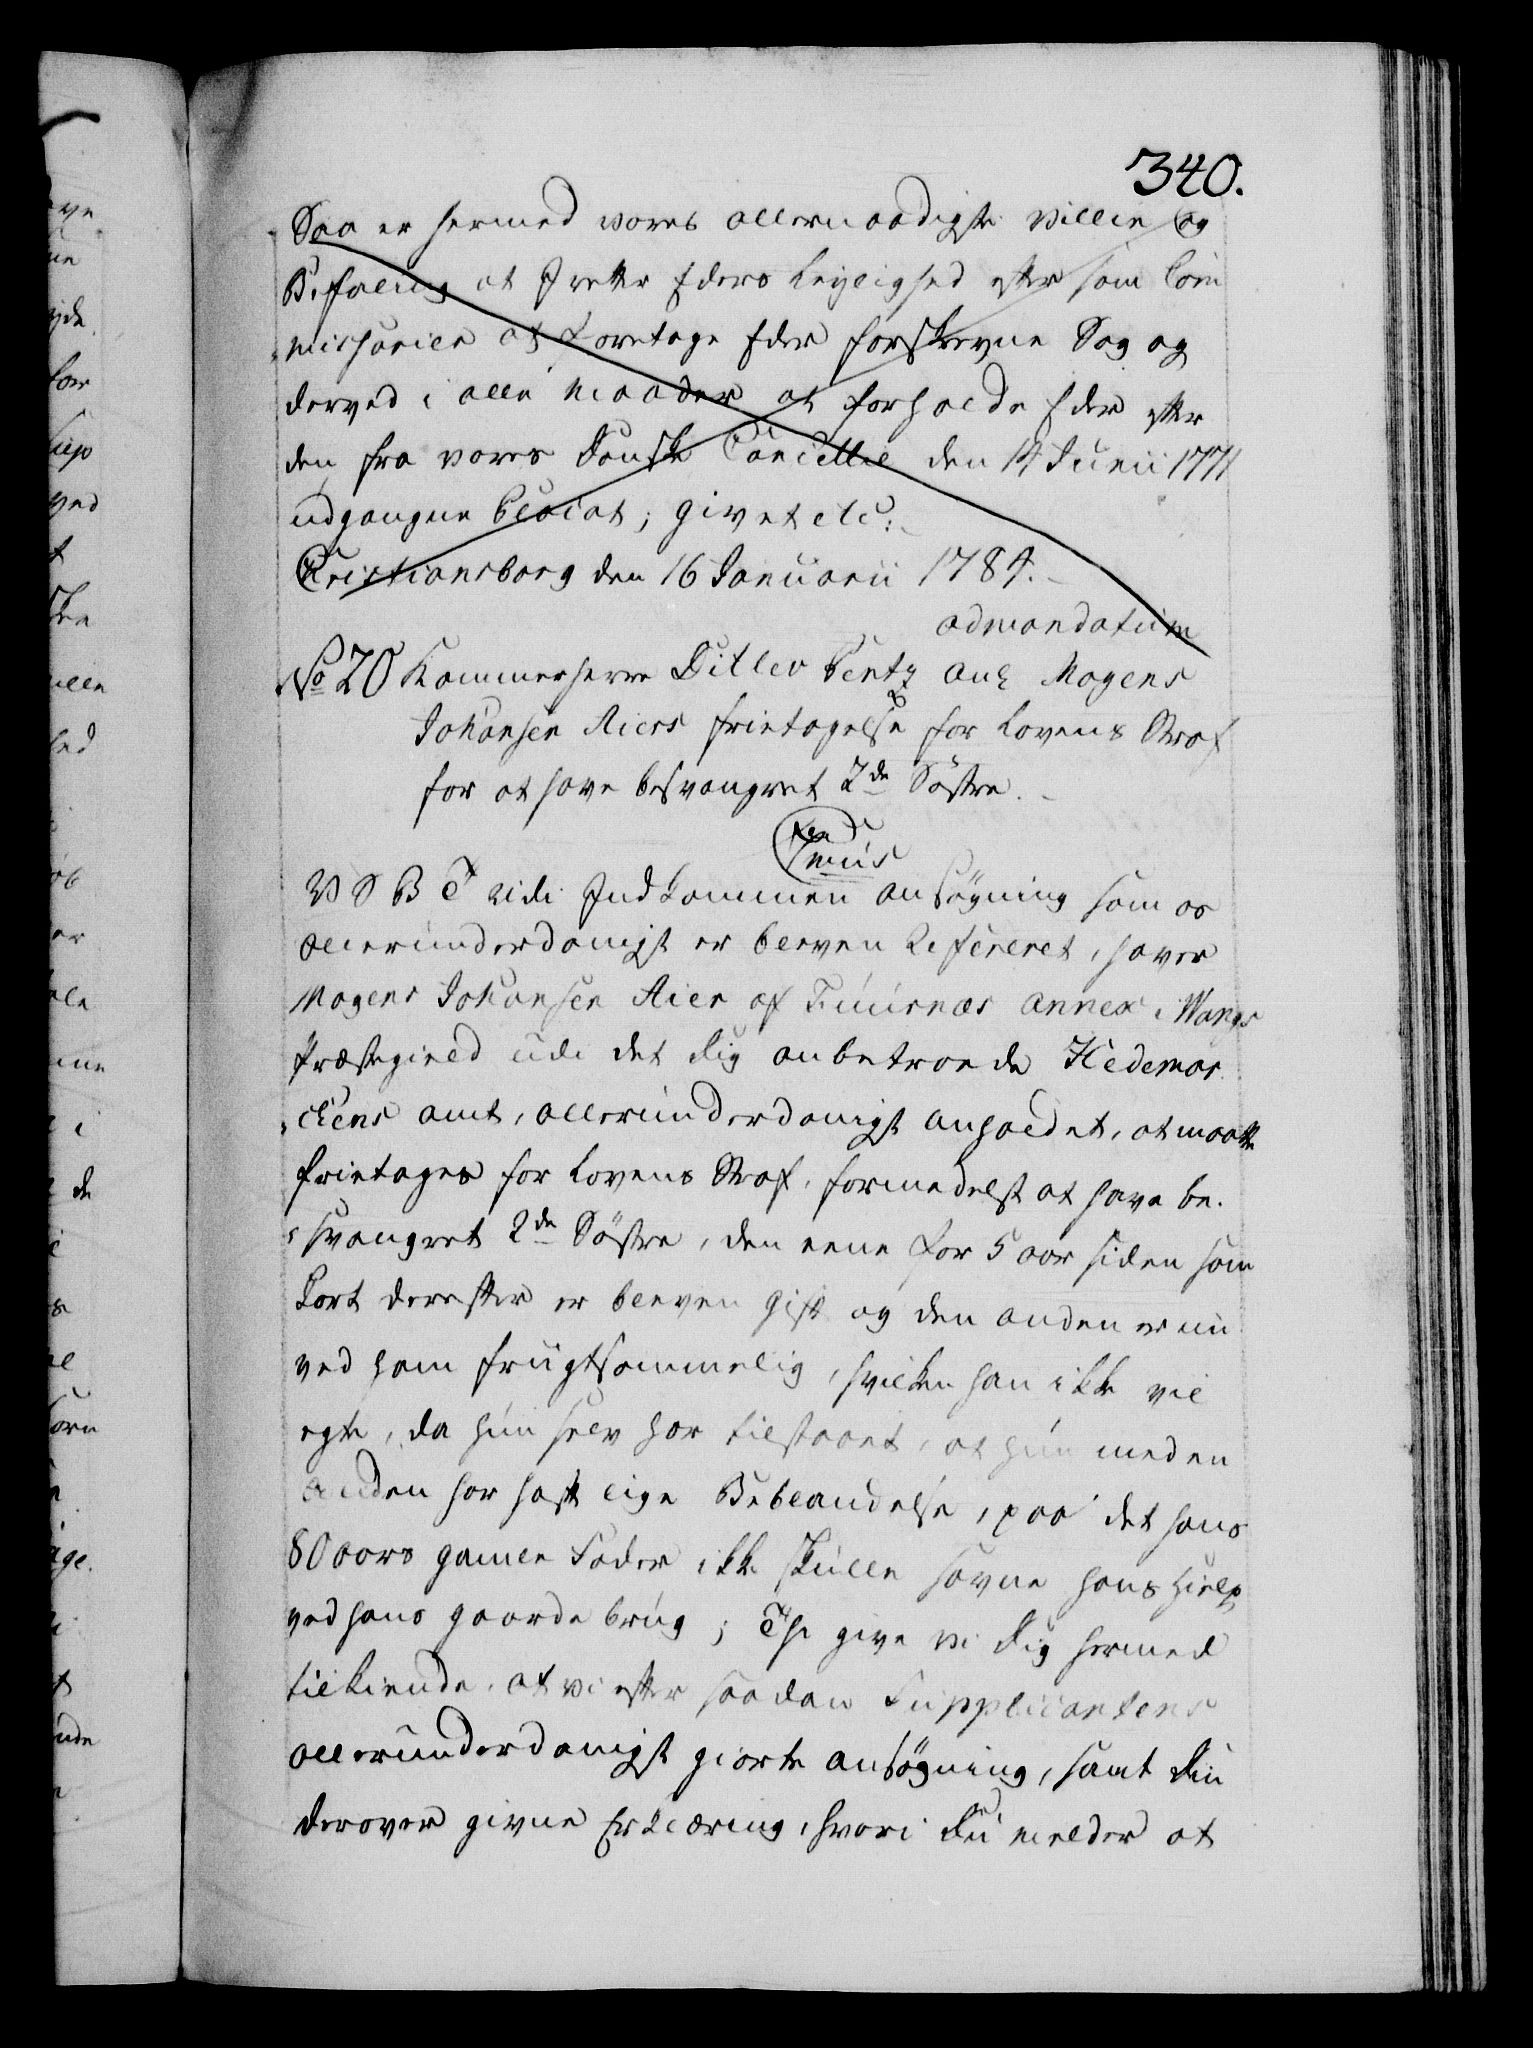 340.
Saa er hermed vores allernaadigste Villie og
Befaling at I rette Eders Leylighed efter som Com
missarier at foretage Eder forskrevne Sag og
derved i alle Maader at forholde Eder efter
den fra vores Danske Cancellie den 14 Junii 1771
udgangne Placat; Givet etc:
Christiansborg den 16 Januarii 1784.
ad mandatum
No 20 Kammerherre Ditlev Pentz anl Mogens
Johansen Aiers frietagelse for Lovens Straf
for at have besvangret 2de Söstre.
V S B T udi Indkommen ansögning som os
allerunderdanigst er bleven Refereret, haver
Mogens Johansen Aier af Fuurnæs Annex i Wangs
Præstegield udi det dig anbetroede Hedemar
ckens amt, allerunderdanigst anholdet, at maatte
frietages for Lovens Straf, formedelst at have be-
svangret 2de Söstre, den eene for 5 aar siden som
kort derefter er bleven gift og den anden er nu
ved ham frugtsommelig, hvilken han ikke vil
egte, da hun selv har tilstaaet, at hun med en
anden har haft lige Beblandelse, paa det hans
80 aars gamle Fader ikke skulle savne hans Hielp
ved hans gaards brug; Thi give vi dig hermed
tilkiende, at vi efter saadan Supplicantens
allerunderdanigst giorte ansögning, samt din
derover givne Erklæring, hvori du melder at